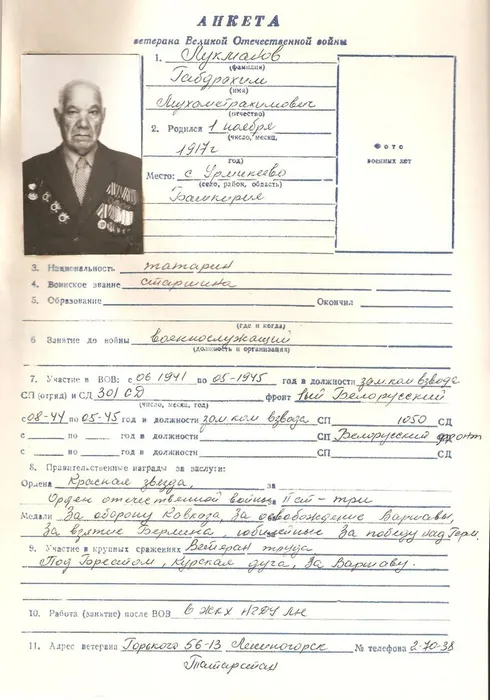 АНКЕТА
ветерана Великой Отечественной войны
1. Лукманов
(фамилия)
Габдрахим
(имя)
Мухометрахимович
(отчество)
2. Родился 1 ноября
(число, месяц,
1917г
год)
Место: с Урмикеево
(село, район, область)
Башкирия
Фото
военных лет
3. Национальность татарин
4. Воинское звание старшина
5. Образование Окончил
(где и когда)
6 Занятие до войны военнослужащий
(должность и организация)
7. Участие в ВОВ: с 06 1941 по 05-1945 год в должности зам.ком взвода
СП (отряд) и СД 301 СД фронт 1ый Белорусский
(число, месяц, год)
с 08-44 по 05-45 год в должности зам.ком взвода СП 1050 СД
с по год в должности СП Белорусский фронт
с по год в должности СП СД
8. Правительственные награды за заслуги:
Ордена Красная звезда, за
Орден отечественной войны за II ст - три
Медали За оборону Кавказа, За освобождение Варшавы,
За взятие Берлина, юбилейные За победу над Герм.
9. Участие в крупных сражениях Ветеран труда
Под Брестом, Курская дуга, За Варшаву.
10. Работа (занятие) после ВОВ в ЖКХ НГДУ ЛН
11. Адрес ветерана Горького 56-13 Лениногорск № телефона 2-70-38
Татарстан